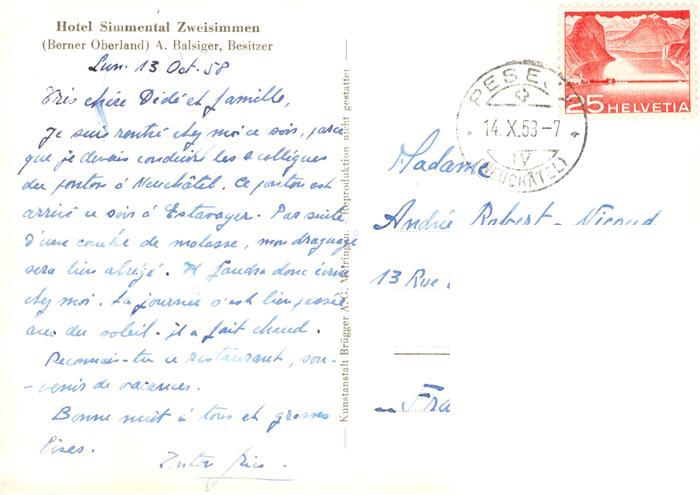 Hotel Simmental Zweisimmen
(Berner Oberland) A. Balsiger, Besitzer
Lun. 13 Oct. 58
Très chère Dédé et famille,
Je suis rentré chez moi ce soir, parce
que je devais conduire les 2 collègues
du ponton à Neuchâtel. Ce ponton est
arrivé ce soir à Estavayer. Par suite
d'une couche de molasse, mon draguage
sera bien abrégé. Il faudra donc écrire
chez moi. La journée s'est bien passée
avec du soleil. Il a fait chaud.
Reconnais-tu ce restaurant, sou-
-venir de vacances.
Bonne nuit à tous et grosses
bises.
Kunstanstalt Brügger A.G. Meiringen. Reproduktion nicht gestattet
25 HELVETIA
PESEUX
14.X.58-7
IV
(NEUCHÂTEL)
Madame
André Robert-Nicoud
13 Rue
Fra